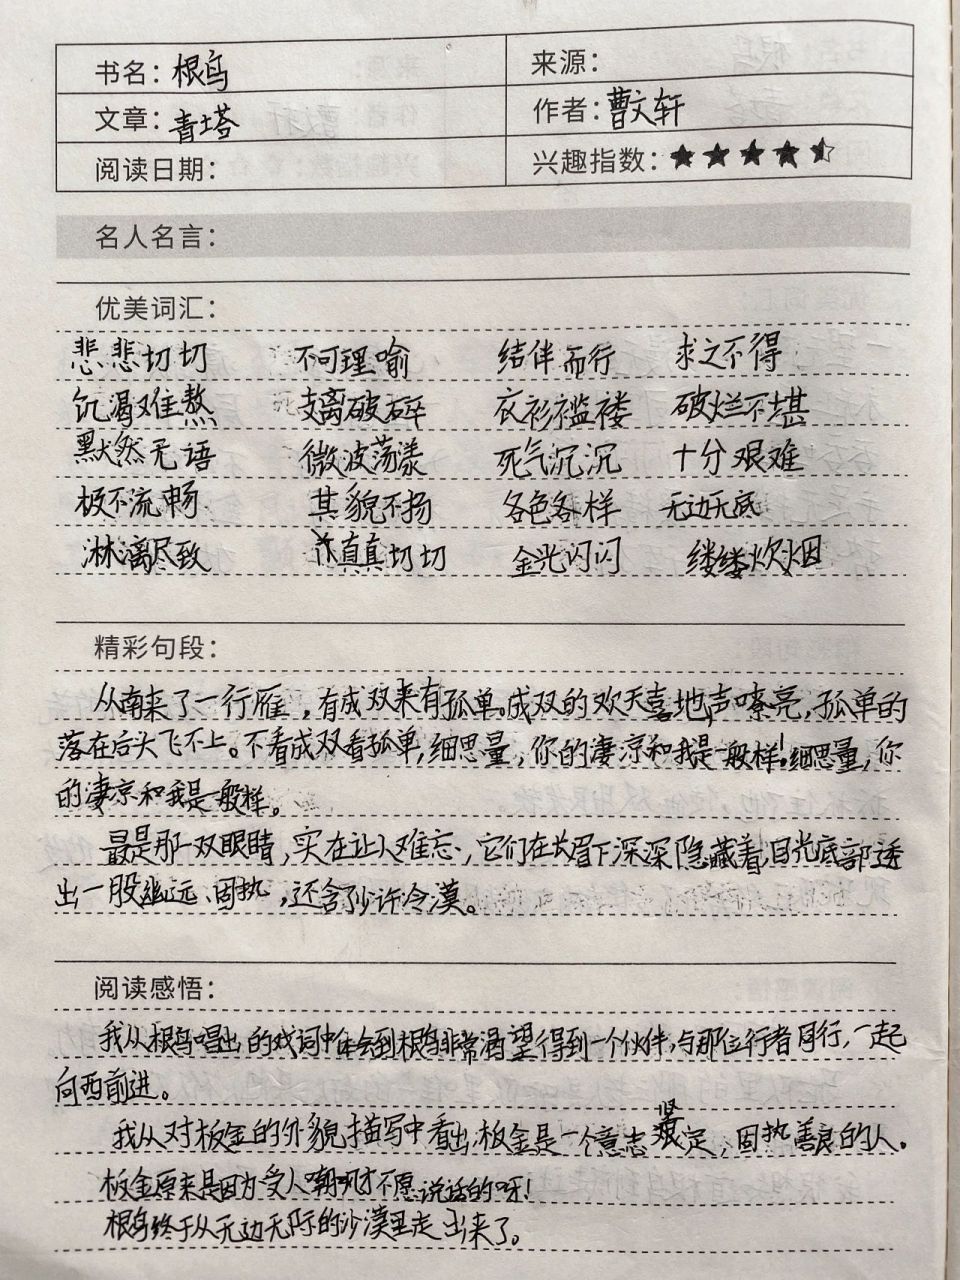 书名：根鸟 来源：
文章：青塔 作者：曹文轩
阅读日期： 兴趣指数：★★★★⯪
名人名言：
优美词汇：
悲悲切切 不可理喻 结伴而行 求之不得
饥渴难熬 支离破碎 衣衫褴褛 破烂不堪
默然无语 微波荡漾 死气沉沉 十分艰难
极不流畅 其貌不扬 各色各样 无边无底
淋漓尽致 真真切切 金光闪闪 缕缕炊烟
精彩句段：
从南来了一行雁，有成双来有孤单。成双的欢天喜地声嘹亮，孤单的
落在后头飞不上。不看成双看孤单，细思量，你的凄凉和我是一般样！细思量，你
的凄凉和我是一般样。
最是那一双眼睛，实在让人难忘，它们在长眉下深深隐藏着，目光底部透
出一股幽远、固执，还含了少许冷漠。
阅读感悟：
我从根鸟唱出的戏词中体会到根鸟非常渴望得到一个伙伴，与那位行者同行，一起
向西前进。
我从对板金的外貌描写中看出，板金是一个意志坚定，固执善良的人。
板金原来是因为受人嘲呪才不愿说话的呀！
根鸟终于从无边无际的沙漠里走出来了。